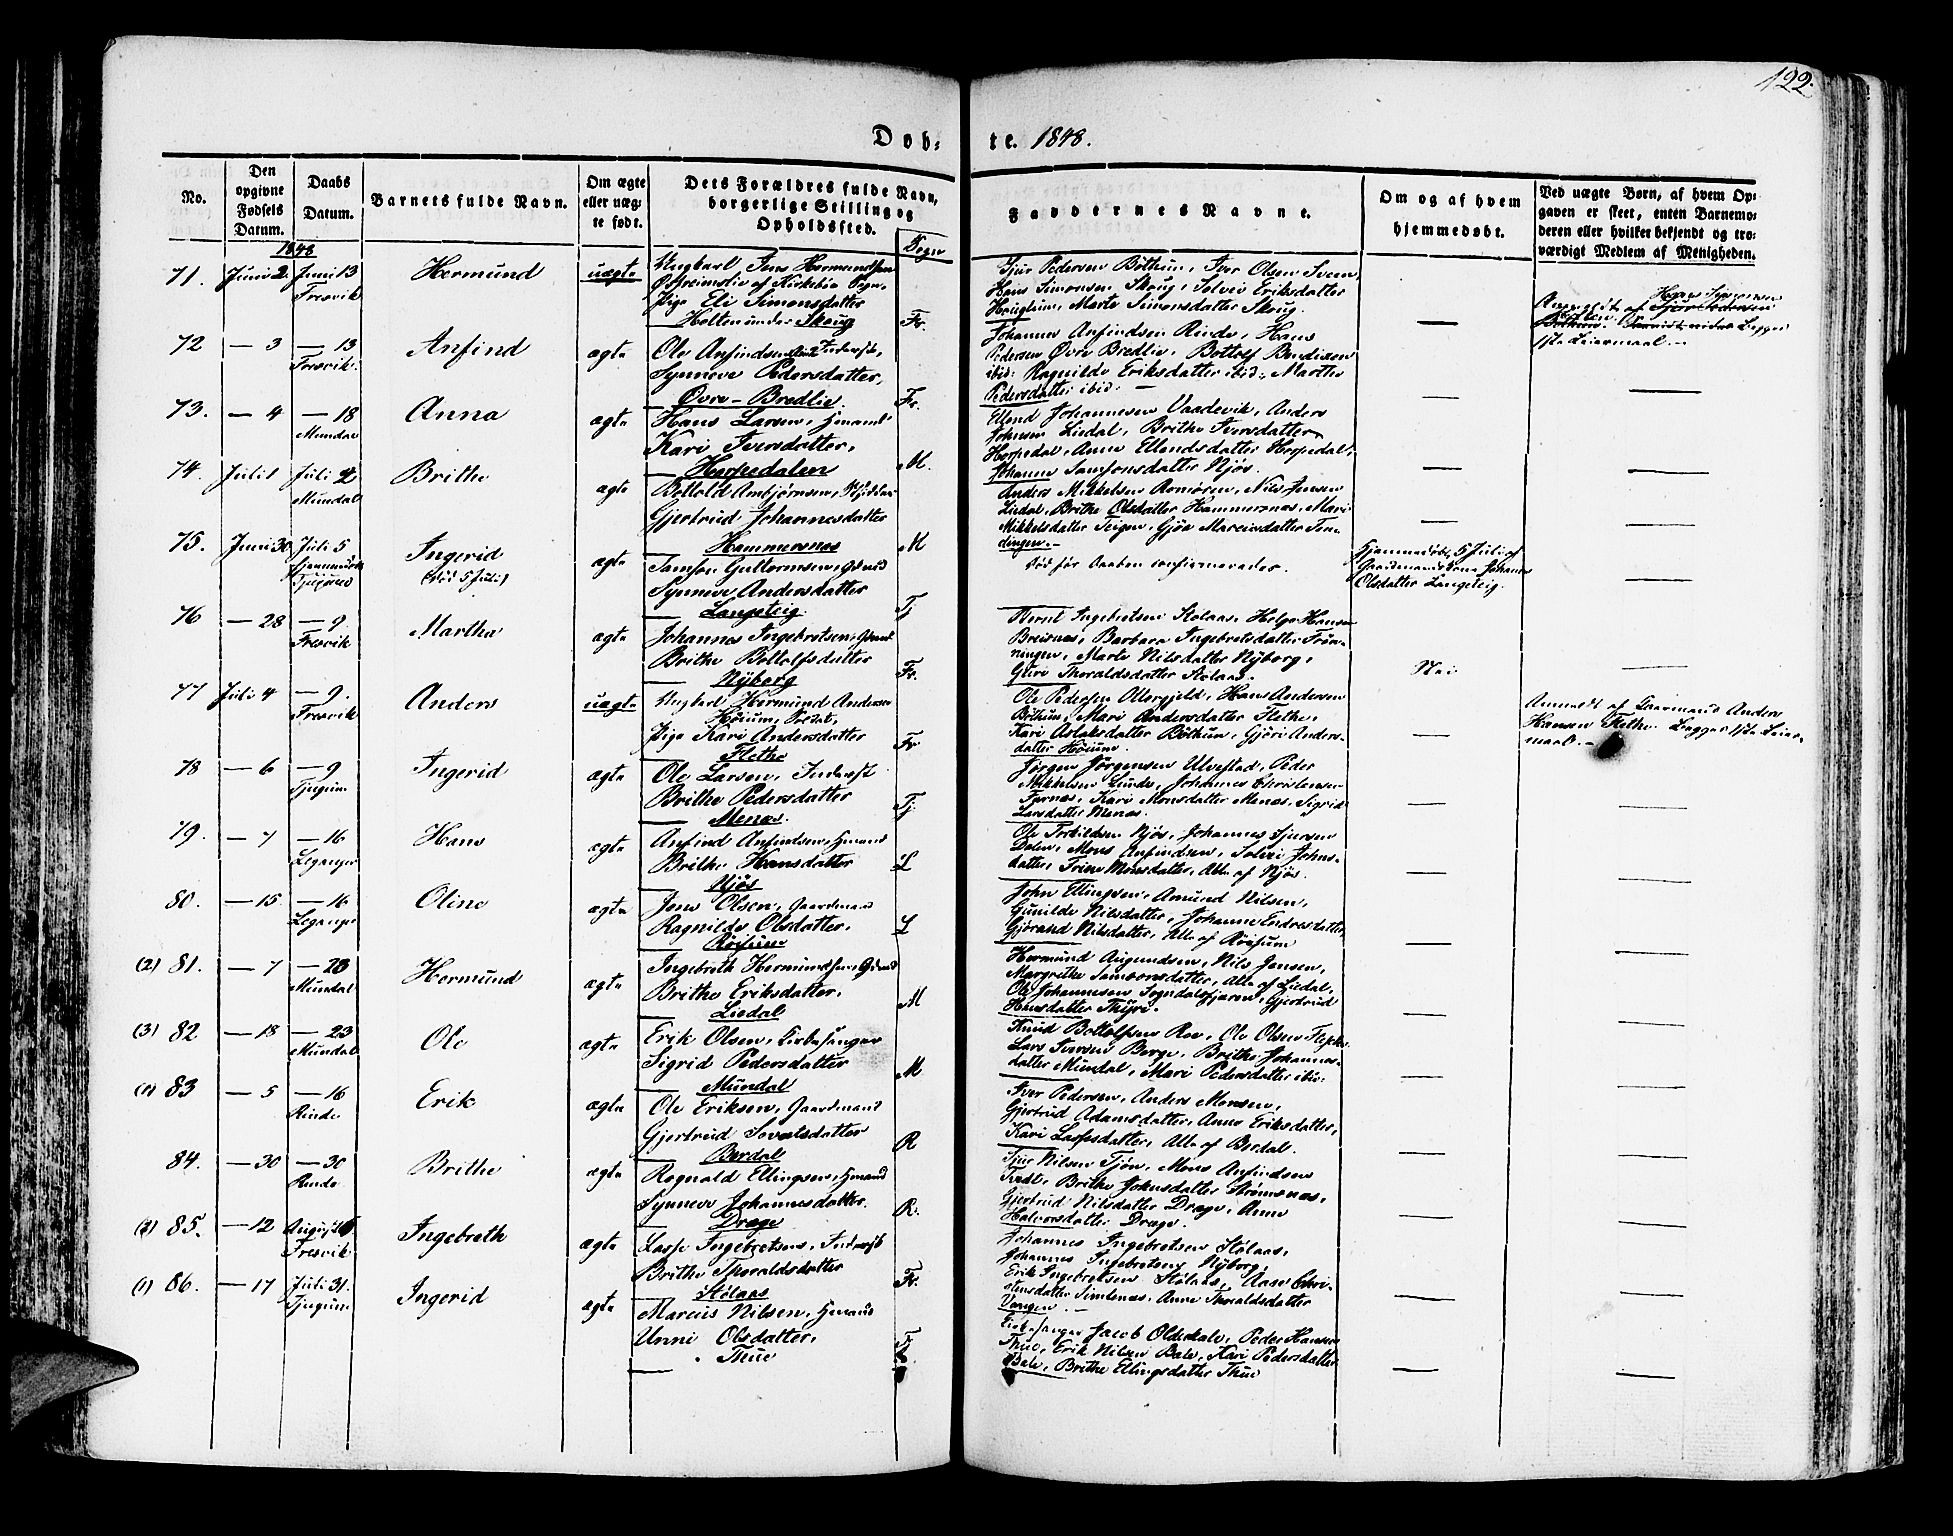 122.
Døb-
te. 1848.
No.
Den opgivne Fødsels Datum.
Daabs Datum.
Barnets fulde Navn.
Om ægte eller uægte født.
Dets Forældres fulde Navn, borgerlige Stilling og Opholdssted.
Sogn
Faddernes Navne.
Om og af hvem hjemmedøbt.
Ved uægte Børn, af hvem Opgaven er skeet, enten Barnemoderen eller hvilket bekjendt og troværdigt Medlem af Menigheden.
1848
71. Juni 2 Juni 13 Hermund uægte Ungkarl Jens Hermundsen
Fresvik
Pige Eli Simonsdatter
Holten under Skoug Fr.
Sjur Pedersen Böthun, Iver Olsen
Hans Simonsen Skoug, Solvei Eriksdatter
Marte Simonsdatter Skoug.
—
72 — 3 — 13 Anfind ægte Ole Anfindsen
Fresvik.
Synneve Pedersdatter,
Øvre-Bredlie. Fr.
Johannes Anfindsen Rinde, Hans
Pedersen Øvre Bredlie, Bottolf Bendixen
ibid: Ragnilde Eriksdatter ibid:, Marthe
Pedersdatter ibid: —
73. — 4 — 18 Anna ægte Hans Larsen, Hmand
Mundal
Kari Iversdatter,
Herpedalen M.
Ellend Johannesen Vaadevik, Anders
Johnsen Liedal, Brithe Iversdatter
Herpedal, Anne Ellendsdatter Herpedal,
Johanne Samsonsdatter Njøs.
74. Juli 1 Juli 2 Brithe ægte
Mundal
Gjertrud Johannesdatter
Hammersnæs M
Anders Mikkelsen Romören, Nils Jensen
Liedal, Brithe Olsdatter Hammersnæs, Mari
Mikkelsdatter Teigen, Gjöa Marcusdatter
75. Juni 30 Juli 5 Ingerid ægte Samson Guttormsen, Gmand
(död 5 Juli)
Synneve Andersdatter
Langeteig Tj
Död för Daaben confirmeredes.
Hjemmedöbt 5 Juli af
Gaardmandskone Johanne
Olsdatter Langeteig.
76 — 28 — 9. Martha ægte Johannes Ingebretsen, Gmand
Fresvik
Brithe Bottolfsdatter
Nÿborg Fr.
Ingebretsen Stölaas, Helge Hansen
Breisnæs, Barbara Ingebretsdatter
Marte Nilsdatter Nÿborg,
Guri Thoraldsdatter Stölaas.
Nei
77 Juli 4 — 9. Anders uægte Ungkarl Hermund Andersen
Fresvik
Pige Kari Andersdatter
Flethe Fr
Ole Pedersen Ottergjeld, Hans Andersen
Böthun, Mari Andersdatter Flethe,
Kari Aslaksdatter Böthun, Gjöri Anders-
datter Høium.
Anmeldt af Gaarmand Anders
Hansen Flethe. Begges 1ste Leier-
maal.
78 — 6 — 9 Ingerid ægte Ole Larsen, Inderst
Tjugum
Brithe Pedersdatter
Menæs. Tj
Jörgen Jörgensen Ulvestad, Peder
Mikkelsen Linde, Johannes Christensen
Kari Monsdatter Menæs, Sigrid
Larsdatter Menæs.
79. — 7 — 16 Hans ægte Anfind Anfindsen, Hmand
Leganger
Brithe Hansdatter
Njøs L
Ole Torkildsen Njøs, Johannes Sjursen
Dalen, Mons Anfindsen, Solvei Johns-
datter, Trine Monsdatter, Alle af Njøs.
80. — 15. — 16 Oline ægte Jens Olsen, Gaardmand
Leganger
Ragnilde Olsdatter,
Röisum L
John Ellingsen, Amund Nilsen,
Gunilde Nilsdatter, Johanne Endresdatter
Gjörand Nilsdatter, Alle af Röisum
(2) 81. — 7 — 23 Hermund ægte Ingebreth Hermundsen, Gmand
Mundal
Brithe Eriksdatter,
Liedal M
Hermund Augundsen, Nils Jensen,
Margrethe Samsonsdatter, Alle af Liedal,
Ole Johannesen Sogndalsfjæren, Gjertrud
Hansdatter
(3) 82 — 18 — 23 Ole ægte Erik Olsen, Kirkesanger
Mundal
Sigrid Pedersdatter
Mundal M
Knud Bottolfsen Roe, Ole Olsen
Lars Iversen Berge, Brithe Johannes-
datter Mundal, Mari Pedersdatter ibid:
(1) 83 — 5 — 16 Erik ægte Ole Eriksen, Gaardmand
Rinde
Gjertrud
Berdal R
Iver Pedersen, Anders Monsen,
Gjertrud Adamsdatter, Anne Eriksdatter,
Kari Lassesdatter, Alle af Berdal.
84. — 30 — 30 Brithe ægte Rognald Ellingsen, Hmand
Rinde
Synneve Johannesdatter.
Drage R.
Sjur Nilsen Tjön, Mons Anfindsen
Tvedt, Brithe Johnsdatter Strömsnæs,
Gjertrud Nilsdatter Drage, Anne
Halvorsdatter Drage.
(2) 85. — 12 August Ingebreth ægte Lasse Ingebretsen, Inderst
Fresvik
Brithe Thoraldsdatter
Stölaas Fr.
Johannes Ingebretsen Stölaas,
Johannes Ingebretsen Nÿborg,
Erik Ingebretsen Stölaas, Aase Chri-
stensdatter Simlenæs, Anne Thoraldsdatter
Vangen.
(1) 86. — 17 Juli 31. Ingerid ægte Marcus Nilsen, Hmand
Tjugum
Unni Olsdatter,
Thue Tj
Kirkesanger Jacob Oldeskale, Peder Hansen
Thue, Erik Nilsen Bale, Kari Pedersdatter
Bale, Brithe Ellingsdatter Thue